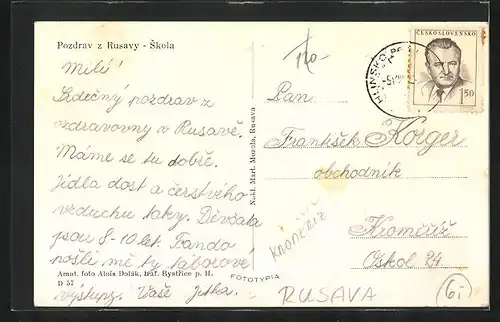 Pozdrav z Rusavy - Škola
Milí!
Srdečný pozdrav z
ozdravovny v Rusavě.
Máme se tu dobře.
Jídla dost a čerstvého
vzduchu taky. Děvčata
jsou 8-10 let. Fando
pošli mě ty táborové
Amat. foto Alois Dolák, haf. Bystřice p. H.
D 57
výstupy. Vaše Jitka.
Nakl. Mart. Mozola, Rusava
FOTOTYPIA
HLINSKO
ČESKOSLOVENSKO
1'50
Pan
František Korger
obchodník
Kroměříž
Oskol 24
KROMĚŘÍŽ
RUSAVA
6,-